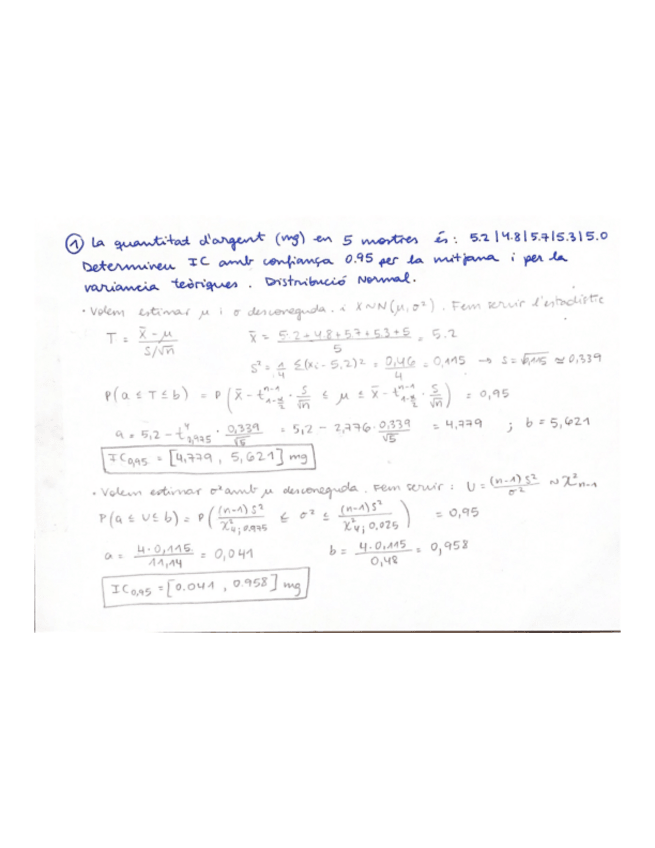 ① La quantitat d'argent (mg) en 5 mostres és: 5.2|4.8|5.7|5.3|5.0
Determineu IC amb confiança 0.95 per la mitjana i per la
variancia teòriques. Distribució Normal.
· Volem estimar μ i σ desconeguda. i X~N(μ,σ²). Fem servir l'estadístic
T = (x̄ - μ)/(S/√n)   x̄ = (5.2+4.8+5.7+5.3+5)/5 = 5.2
S² = 1/4 Σ(xi - 5,2)² = 0,46/4 = 0,115 → S = √0,115 ≃ 0,339
P(a ≤ T ≤ b) = P(x̄ - t^{n-1}_{1-α/2} · S/√n ≤ μ ≤ x̄ - t^{n-1}_{1-α/2} · S/√n) = 0,95
a = 5,2 - t⁴_{0,975} · 0,339/√5 = 5,2 - 2,776 · 0,339/√5 = 4,779 ; b = 5,621
IC0,95 = [4,779 , 5,621] mg
· Volem estimar σ² amb μ desconeguda. Fem servir: U = (n-1)S²/σ² ~ χ²n-1
P(a ≤ U ≤ b) = P((n-1)S²/χ²4;0.975 ≤ σ² ≤ (n-1)S²/χ²4;0,025) = 0,95
a = 4·0,115/11,14 = 0,041   b = 4·0,115/0,48 = 0,958
IC0,95 = [0.041 , 0.958] mg